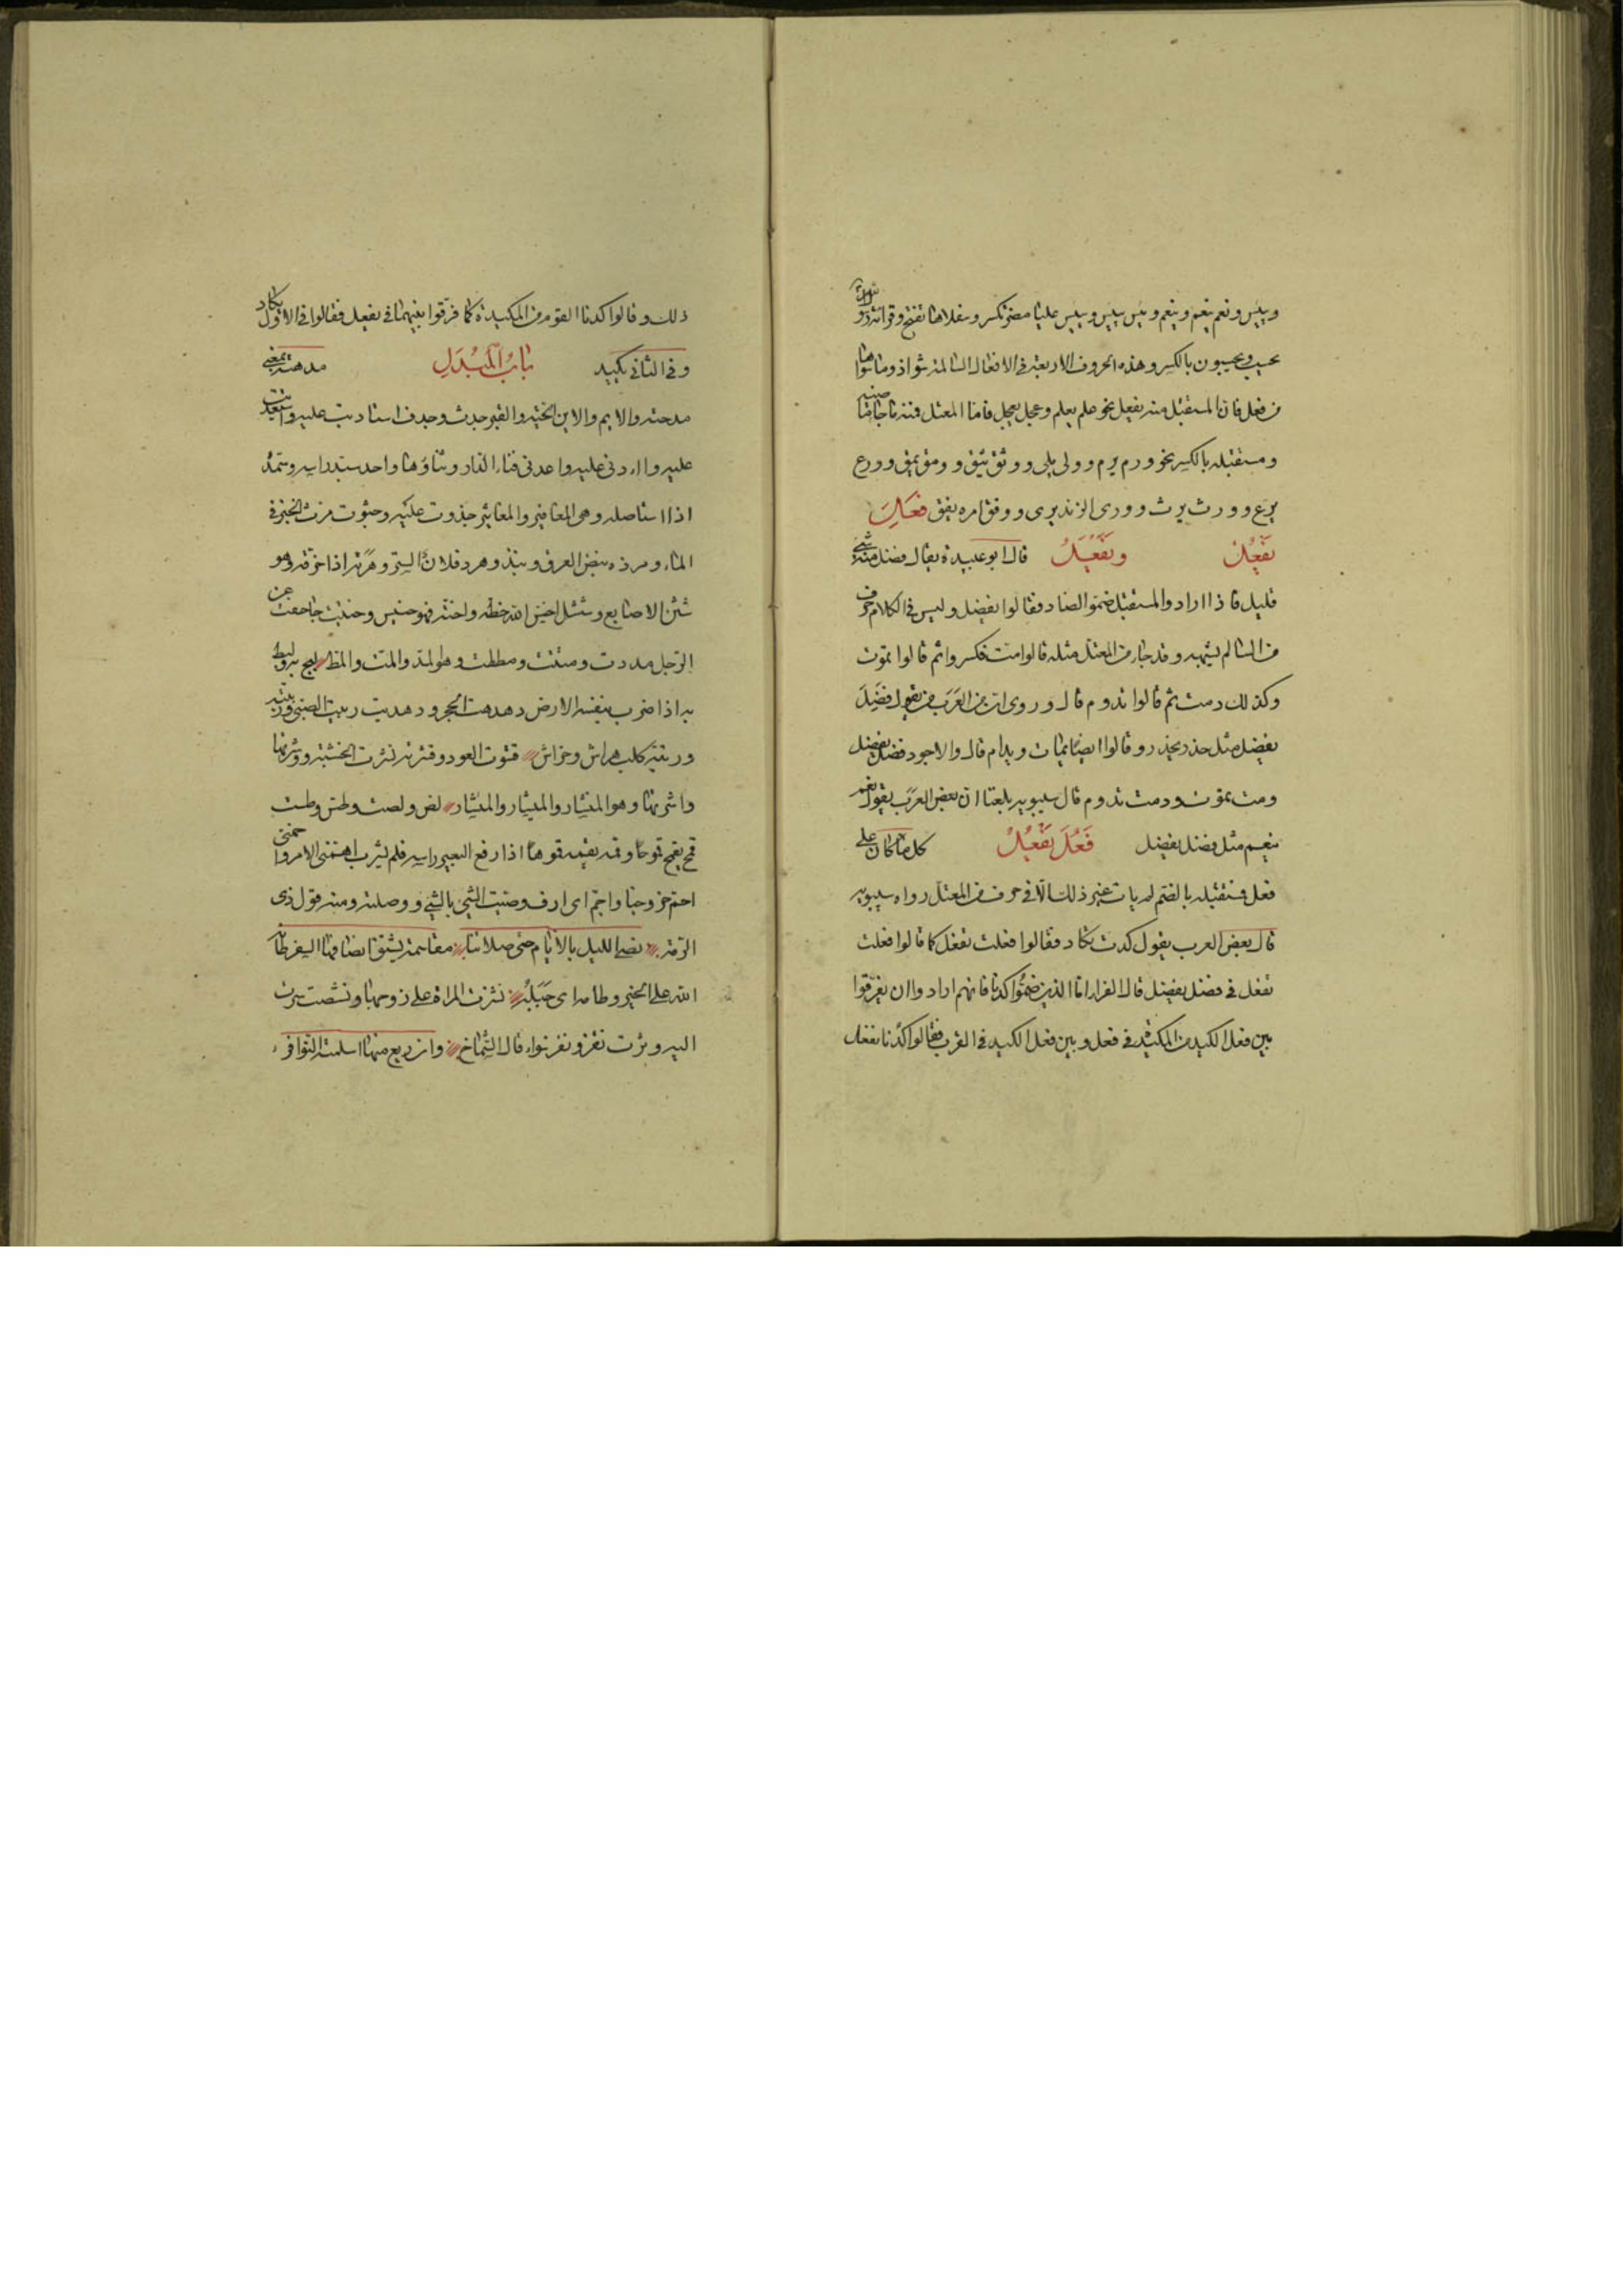 وييس ونعم ينعم وينعم ويئس ييئس وييئس عليا مضر تكسر وسفلاها تفتح وقرا
يحسب ويحسبون بالكسر وهذه الحروف الاربعة فى الافعال السالمة شواذ وما سواها
من فعل فان المستقبل منه يفعل نحو علم يعلم وعجل يعجل فاما المعتل فمنه ما جا ماضيه
ومستقبله بالكسر نحو ورم يرم وولى يلى ووثق يثق وومق يمق وورع
يرع وورث يرث وورى الزند يرى ووفق امره يفق فَعِلَ
يَفْعُلُ ويَفْعَلُ قال ابو عبيدة يقال فضل منه شئ
قليل فاذا ارادوا المستقبل ضموا الضاد فقالوا يفضل وليس فى الكلام حرف
من السالم يشبهه وقد جاء من المعتل مثله قالوا مت فكسروا ثم قالوا تموت
وكذلك دمت ثم قالوا تدوم قال وروى ان من العرب من يقول فضل
يفضل مثل حذر يحذر وقالوا ايضا يمات ويدام قال والاجود فضل يفضل
ومت تموت ودمت تدوم قال سيبويه بلغنا ان بعض العرب يقول نعم
ينعم مثل فضل يفضل فَعُلَ يَفْعُلُ كل ما كان على
فعل فمستقبله بالضم لم يات غير ذلك الا فى حرف من المعتل رواه سيبويه
قال بعض العرب يقول كدت تكاد فقالوا فعلت تفعل كما قالوا فعلت
تفعل فى فضل يفضل قال الفراء اما الذين ضموا كدنا فانهم ارادوا ان يفرقوا
بين فعل الكيد من المكيدة فى فعل وبين فعل الكيد فى القرب فقالوا كدنا نفعل
ذلك وقالوا كدنا القوم من المكيدة كما فرقوا بينهما فى يفعل فقالوا فى الاول يكاد
وفى الثانى يكيد بَابُ المُبْدَلِ مدهته بمعنى
مدحته والايم والاين الحية والقبر جدث وجدف استاديت عليه واستعديت
عليه واادنى عليه واعدنى فناء الدار وثناؤها واحد سبد راسه وسمد
اذا استاصله وهى المغافير والمغاثير جذوت عليه وجثوت مرث الخبز فى
الماء ومرذه نبض العرق ونبذ وهرد فلان الستر وهرته اذا خرقه وهو
شثن الاصابع وشثل اخس الله حظه واخته فهو خسيس وختيت جاحفت عن
الرجل مددت ومتت ومططت وهو المد والمت والمط لبج به ولبط
به اذا ضرب بنفسه الارض دهدهت الحجر ودهديت ربيت الصبى وربته
وربته كلب هراش وخراش قشوت العود وقشرته نشرت الخشبة ووشرتها
واشرتها وهو المنشار والميشار والمئشار لص ولصت وطس وطست
قمح يقمح قموحا وقمه يقمه قموها اذا رفع البعير راسه فلم يشرب اهمنى الامر واحمنى
احم خروجنا واجم اى ازف وصيت الشئ بالشئ ووصلته ومنه قول ذى
الرمة نصى الليل بالايام حتى صلاتنا مقاسمة يشتق انصافها السفر طانه
الله على الخير وطامه اى جبله نشزت المراة على زوجها ونشصت
اليه وثرت تقز ونقز نواء قال الشماخ وان ريع منها اسلمته النوافز